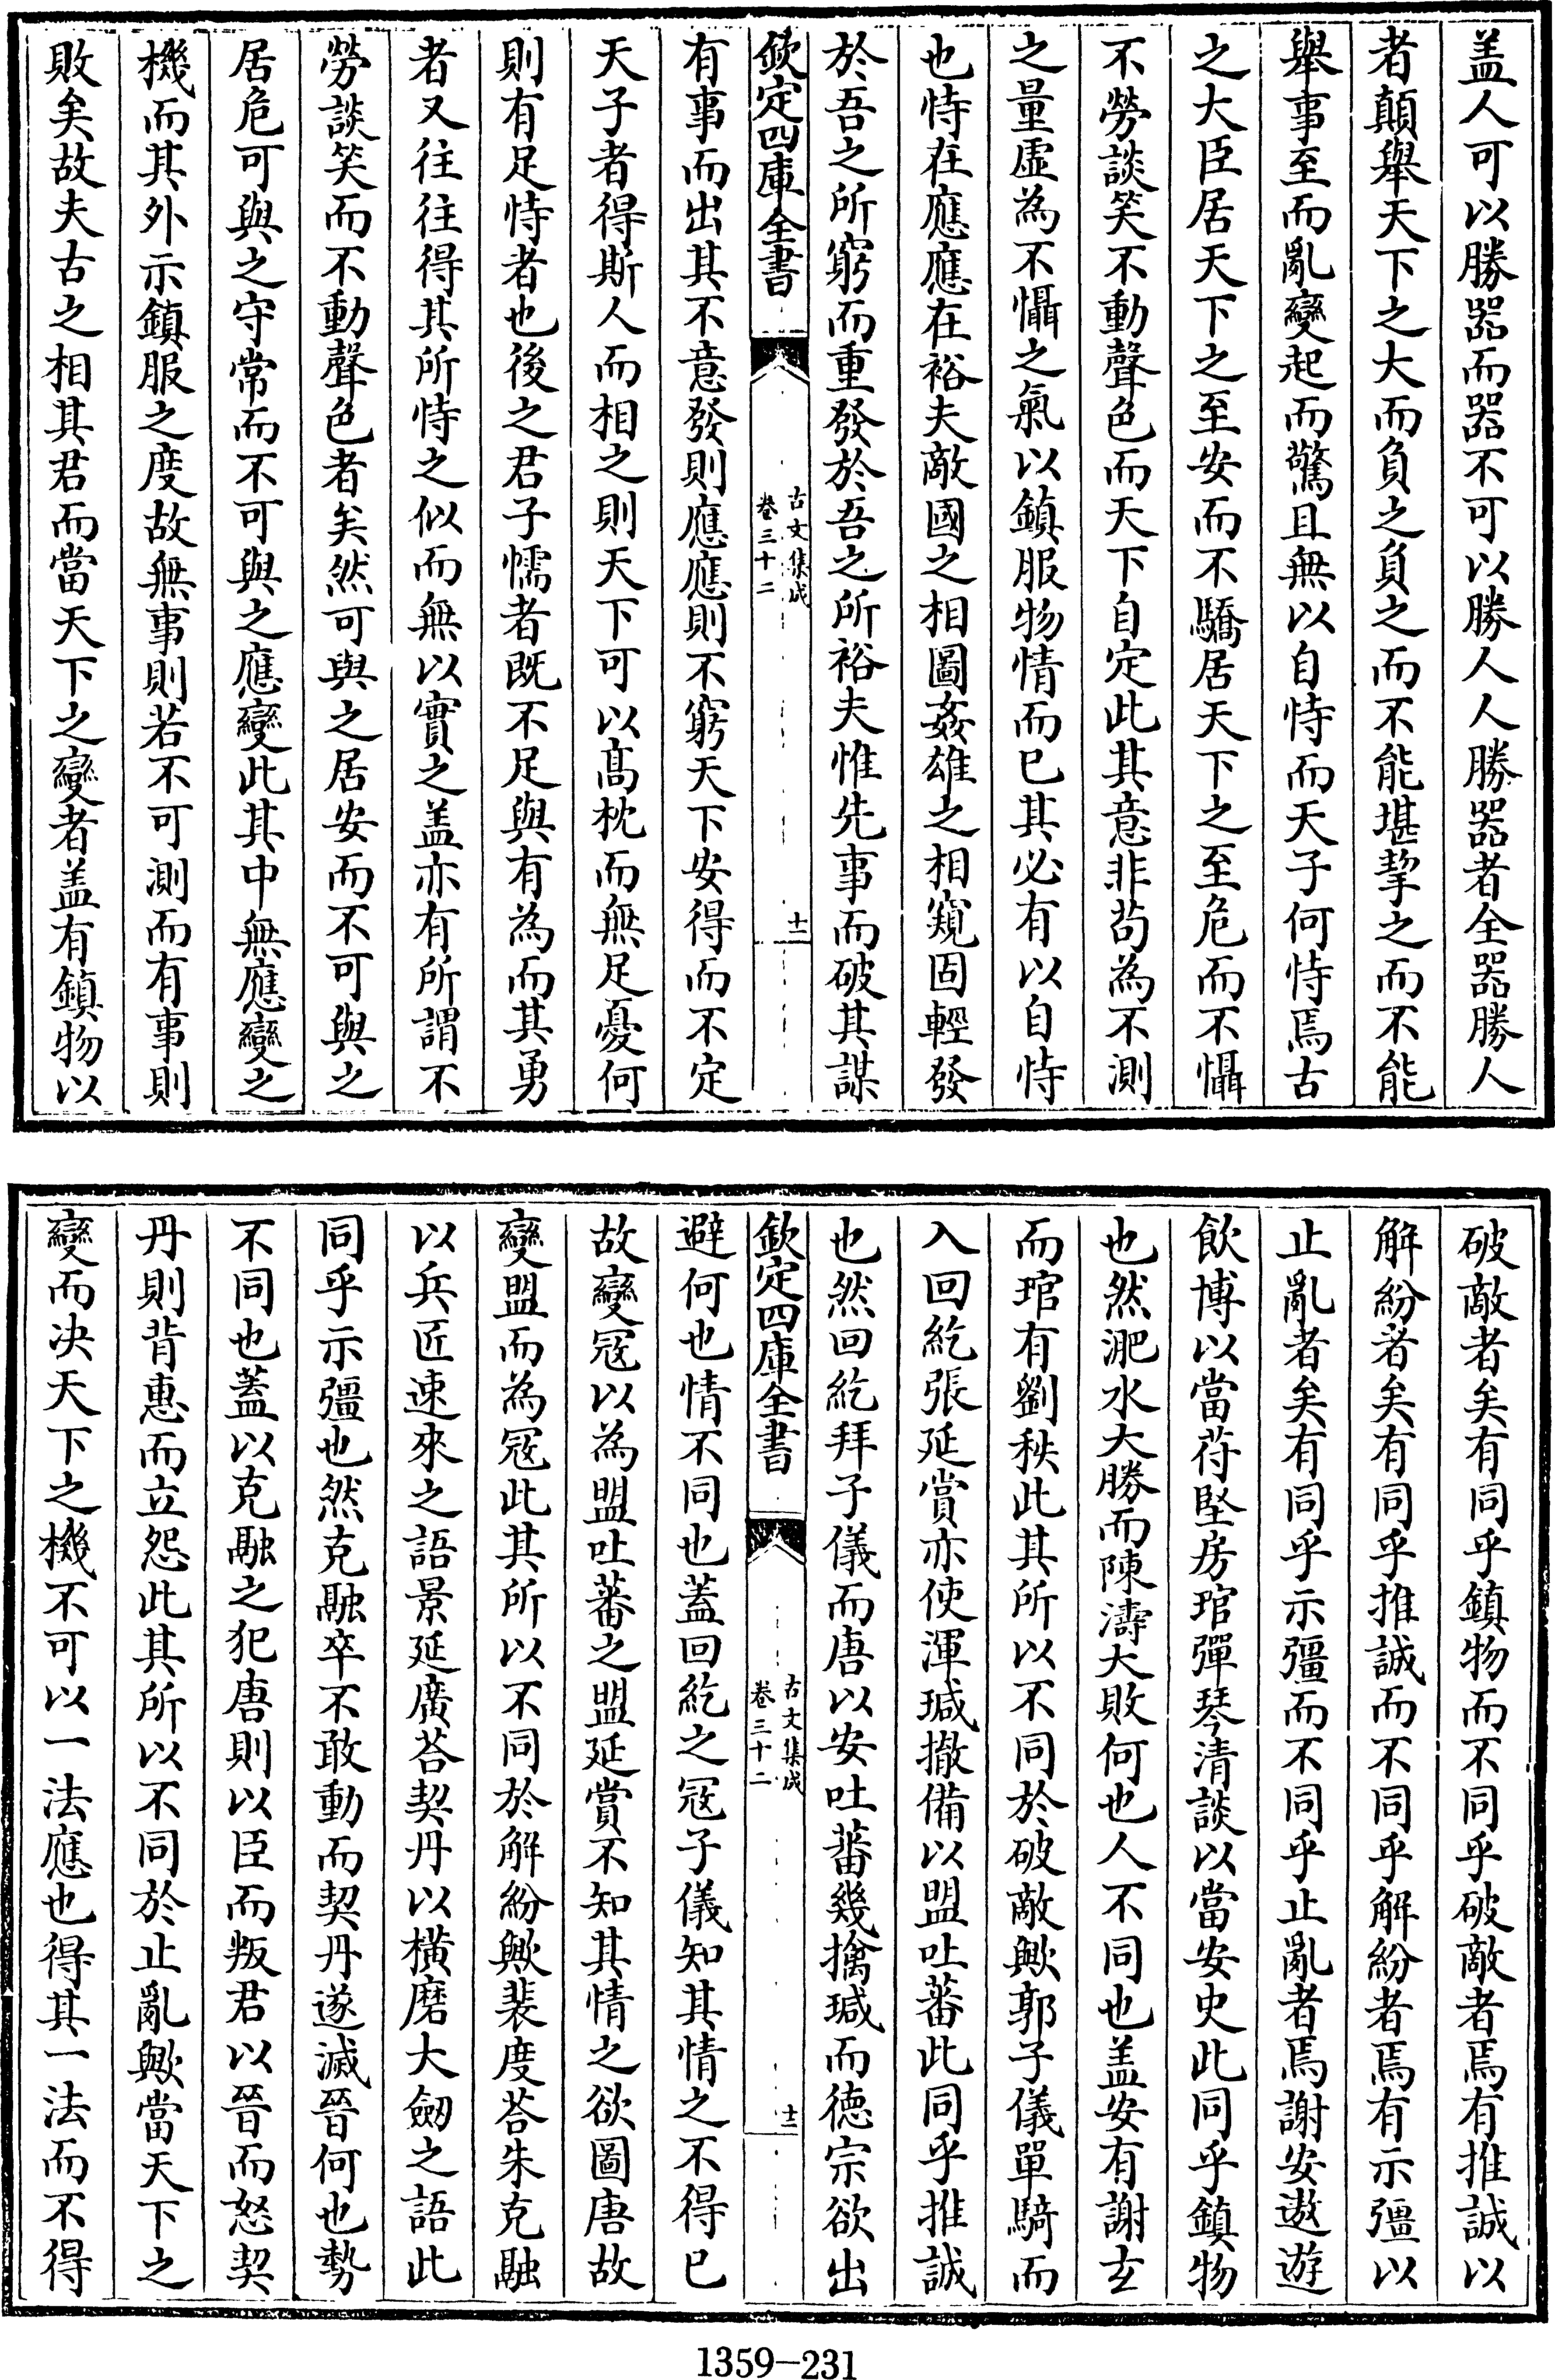 盖人可以勝器而器不可以勝人人勝器者全器勝人
者顛舉天下之大而負之負之而不能堪挈之而不能
舉事至而亂變起而驚且無以自恃而天子何恃焉古
之大臣居天下之至安而不驕居天下之至危而不懾
不勞談笑不動聲色而天下自定此其意非茍為不測
之量虛為不懾之氣以鎮服物情而已其必有以自恃
也恃在應應在裕夫敵國之相圖姦雄之相窺固輕發
於吾之所窮而重發於吾之所裕夫惟先事而破其謀
欽定四庫全書
古文集成
卷三十二
十一
有事而出其不意發則應應則不窮天下安得而不定
天子者得斯人而相之則天下可以高枕而無足憂何
則有足恃者也後之君子懦者既不足與有為而其勇
者又往往得其所恃之似而無以實之盖亦有所謂不
勞談笑而不動聲色者矣然可與之居安而不可與之
居危可與之守常而不可與之應變此其中無應變之
機而其外示鎮服之度故無事則若不可測而有事則
敗矣故夫古之相其君而當天下之變者盖有鎮物以
破敵者矣有同乎鎮物而不同乎破敵者焉有推誠以
解紛者矣有同乎推誠而不同乎解紛者焉有示彊以
止亂者矣有同乎示彊而不同乎止亂者焉謝安遨遊
飲博以當苻堅房琯彈琴清談以當安史此同乎鎮物
也然淝水大勝而陳濤大敗何也人不同也盖安有謝玄
而琯有劉秩此其所以不同於破敵歟郭子儀單騎而
入回紇張延賞亦使渾瑊撤備以盟吐蕃此同乎推誠
也然回紇拜子儀而唐以安吐蕃幾擒瑊而德宗欲出
欽定四庫全書
古文集成
卷三十二
十二
避何也情不同也蓋回紇之冦子儀知其情之不得已
故變冦以為盟吐蕃之盟延賞不知其情之欲圖唐故
變盟而為冦此其所以不同於解紛歟裴度荅朱克融
以兵匠速來之語景延廣荅契丹以橫磨大劔之語此
同乎示彊也然克融卒不敢動而契丹遂滅晉何也勢
不同也蓋以克融之犯唐則以臣而叛君以晉而怒契
丹則背惠而立怨此其所以不同於止亂歟當天下之
變而决天下之機不可以一法應也得其一法而不得
1359-231